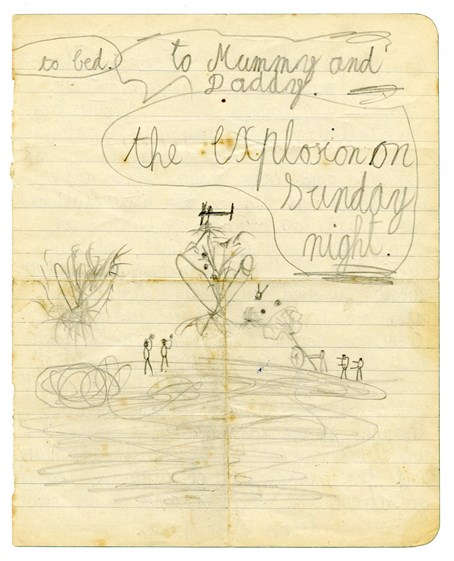 to bed.
to Mummy and
Daddy.
the explosion on
Sunday
night.